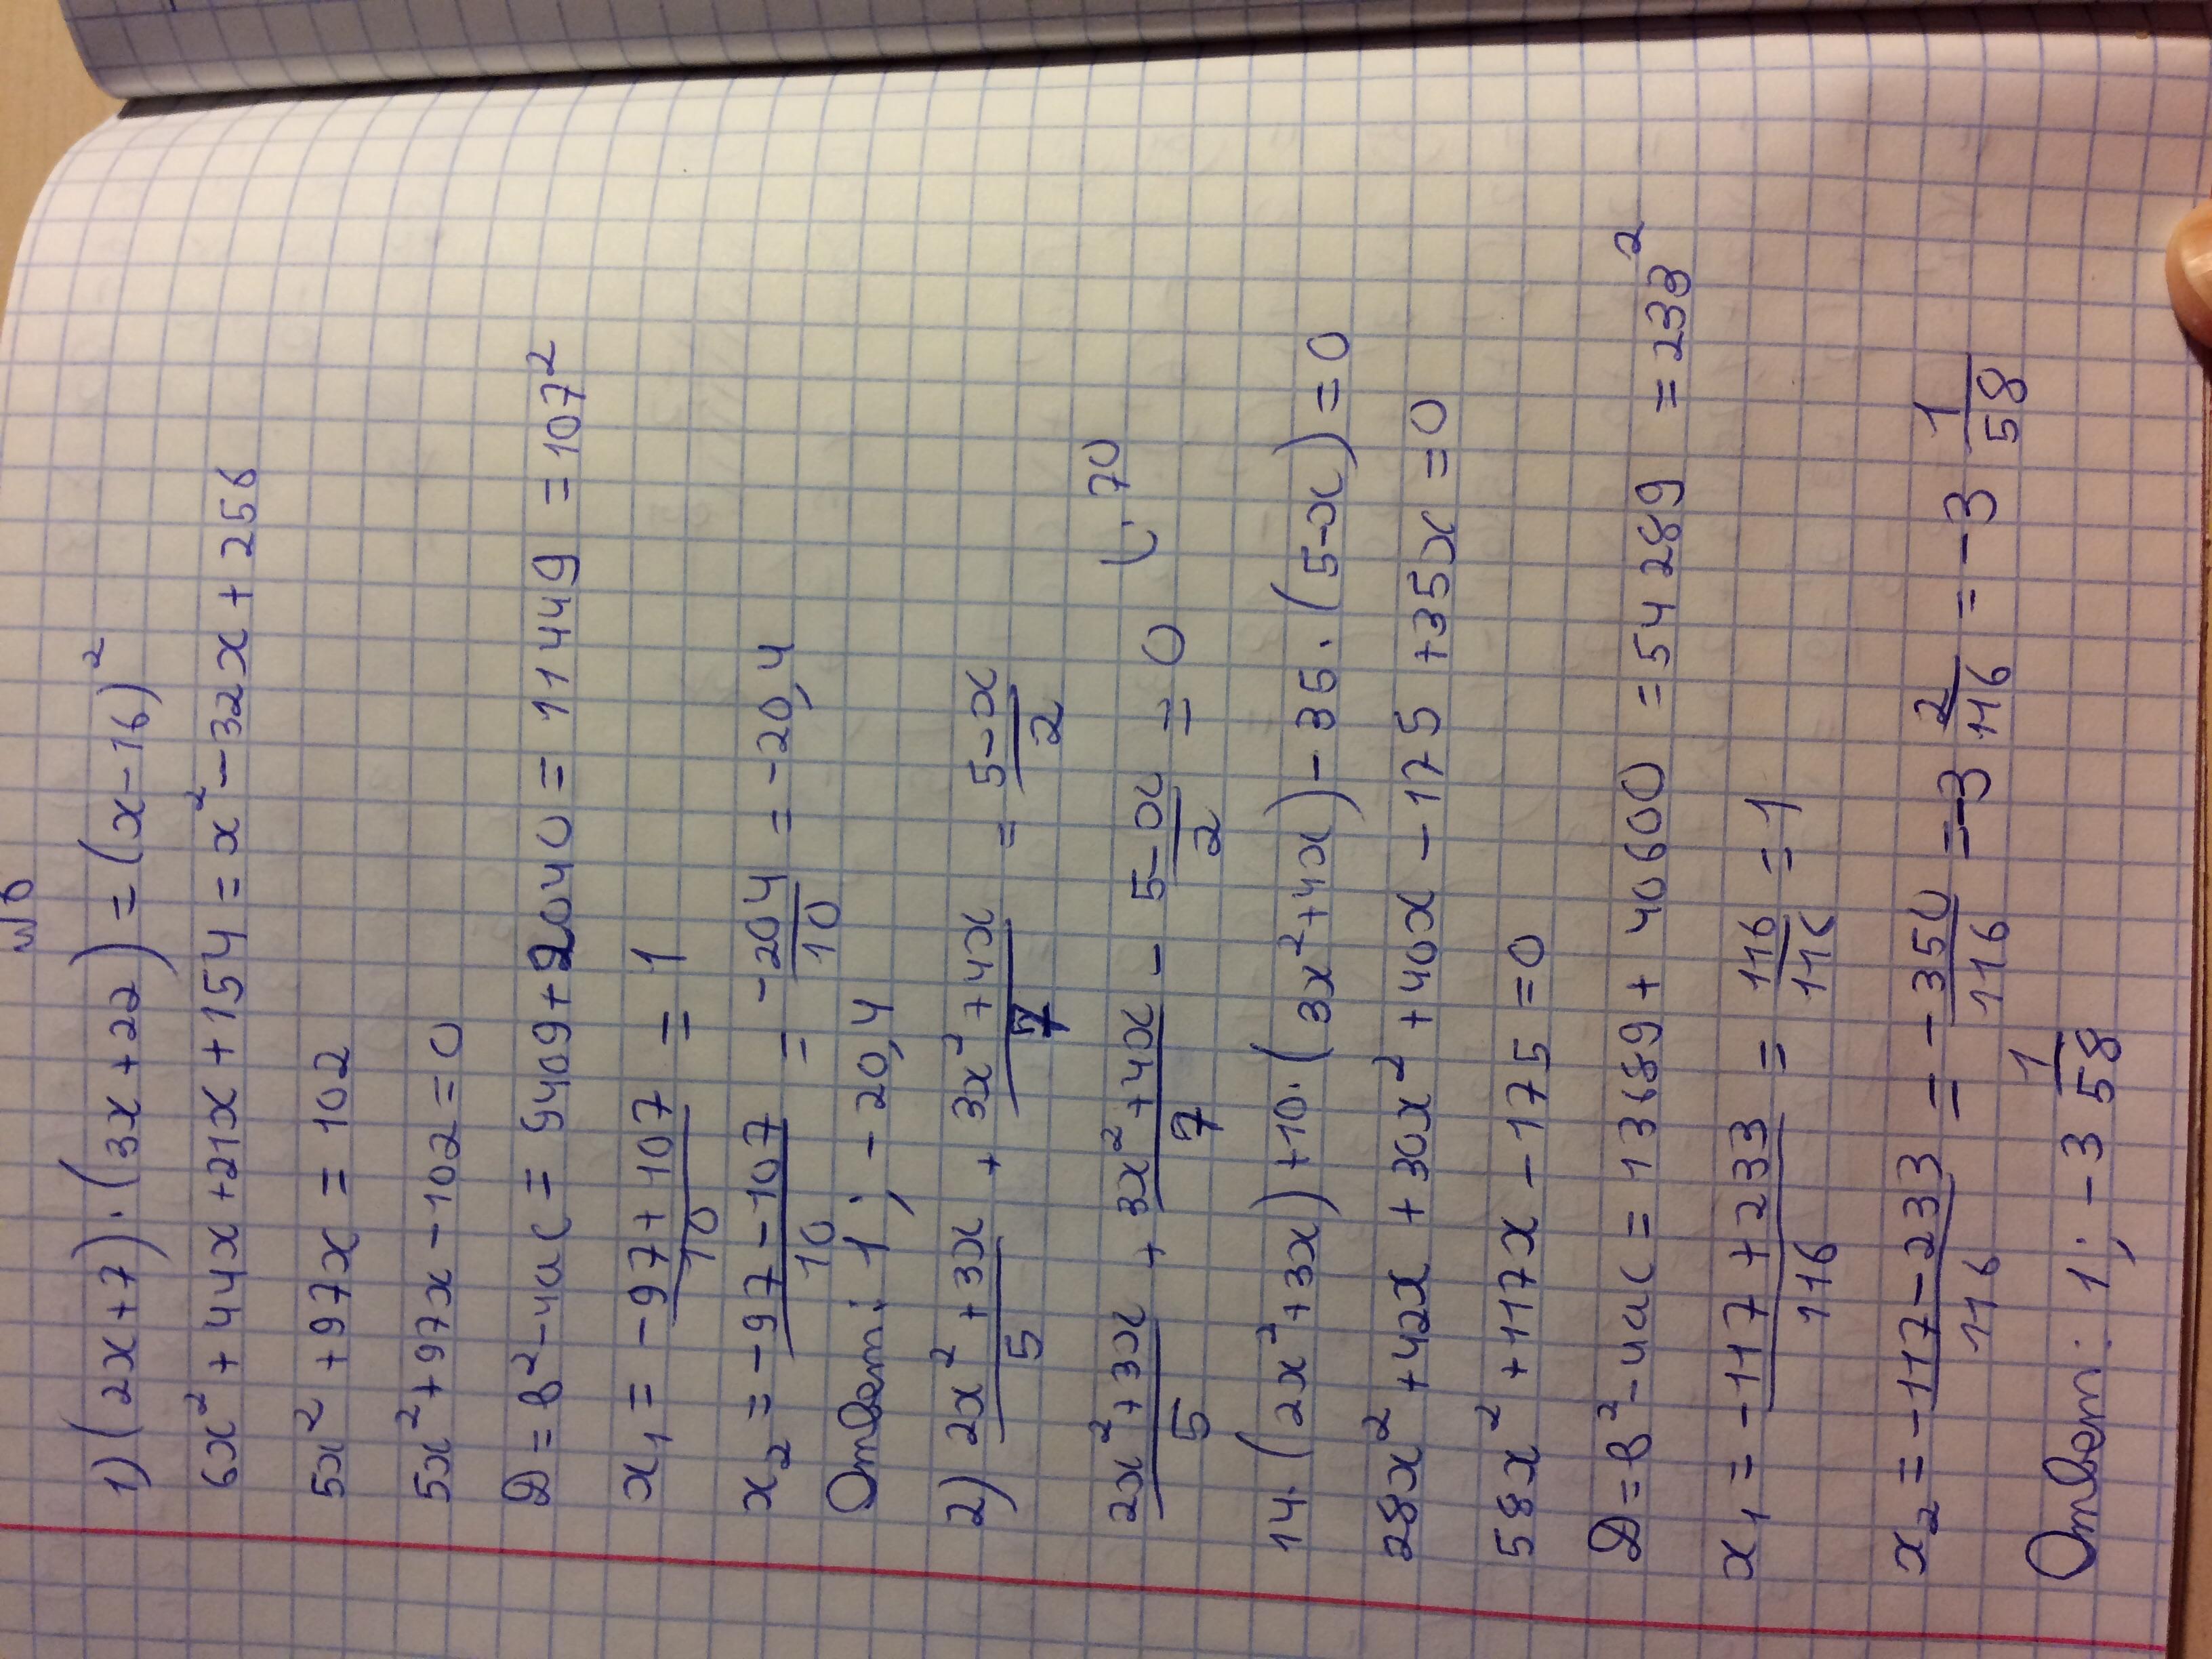 1) (2x+7)·(3x+22)=(x-16)²
6x²+44x+21x+154=x²-32x+256
5x²+97x=102
5x²+97x-102=0
D=b²-4ac=9409+2040=11449=107²
x₁=(-97+107)/10=1
x₂=(-97-107)/10=-204/10=-20,4
Ответ: 1; -20,4
2) (2x²+3x)/5+(3x²+4x)/7=(5-x)/2
(2x²+3x)/5+(3x²+4x)/7-(5-x)/2=0 (·70
14·(2x²+3x)+10·(3x²+4x)-35·(5-x)=0
28x²+42x+30x²+40x-175+35x=0
58x²+117x-175=0
D=b²-4ac=13689+40600=54289=233²
x₁=(-117+233)/116=116/116=1
x₂=(-117-233)/116=-350/116=-3 2/116=-3 1/58
Ответ: 1; -3 1/58